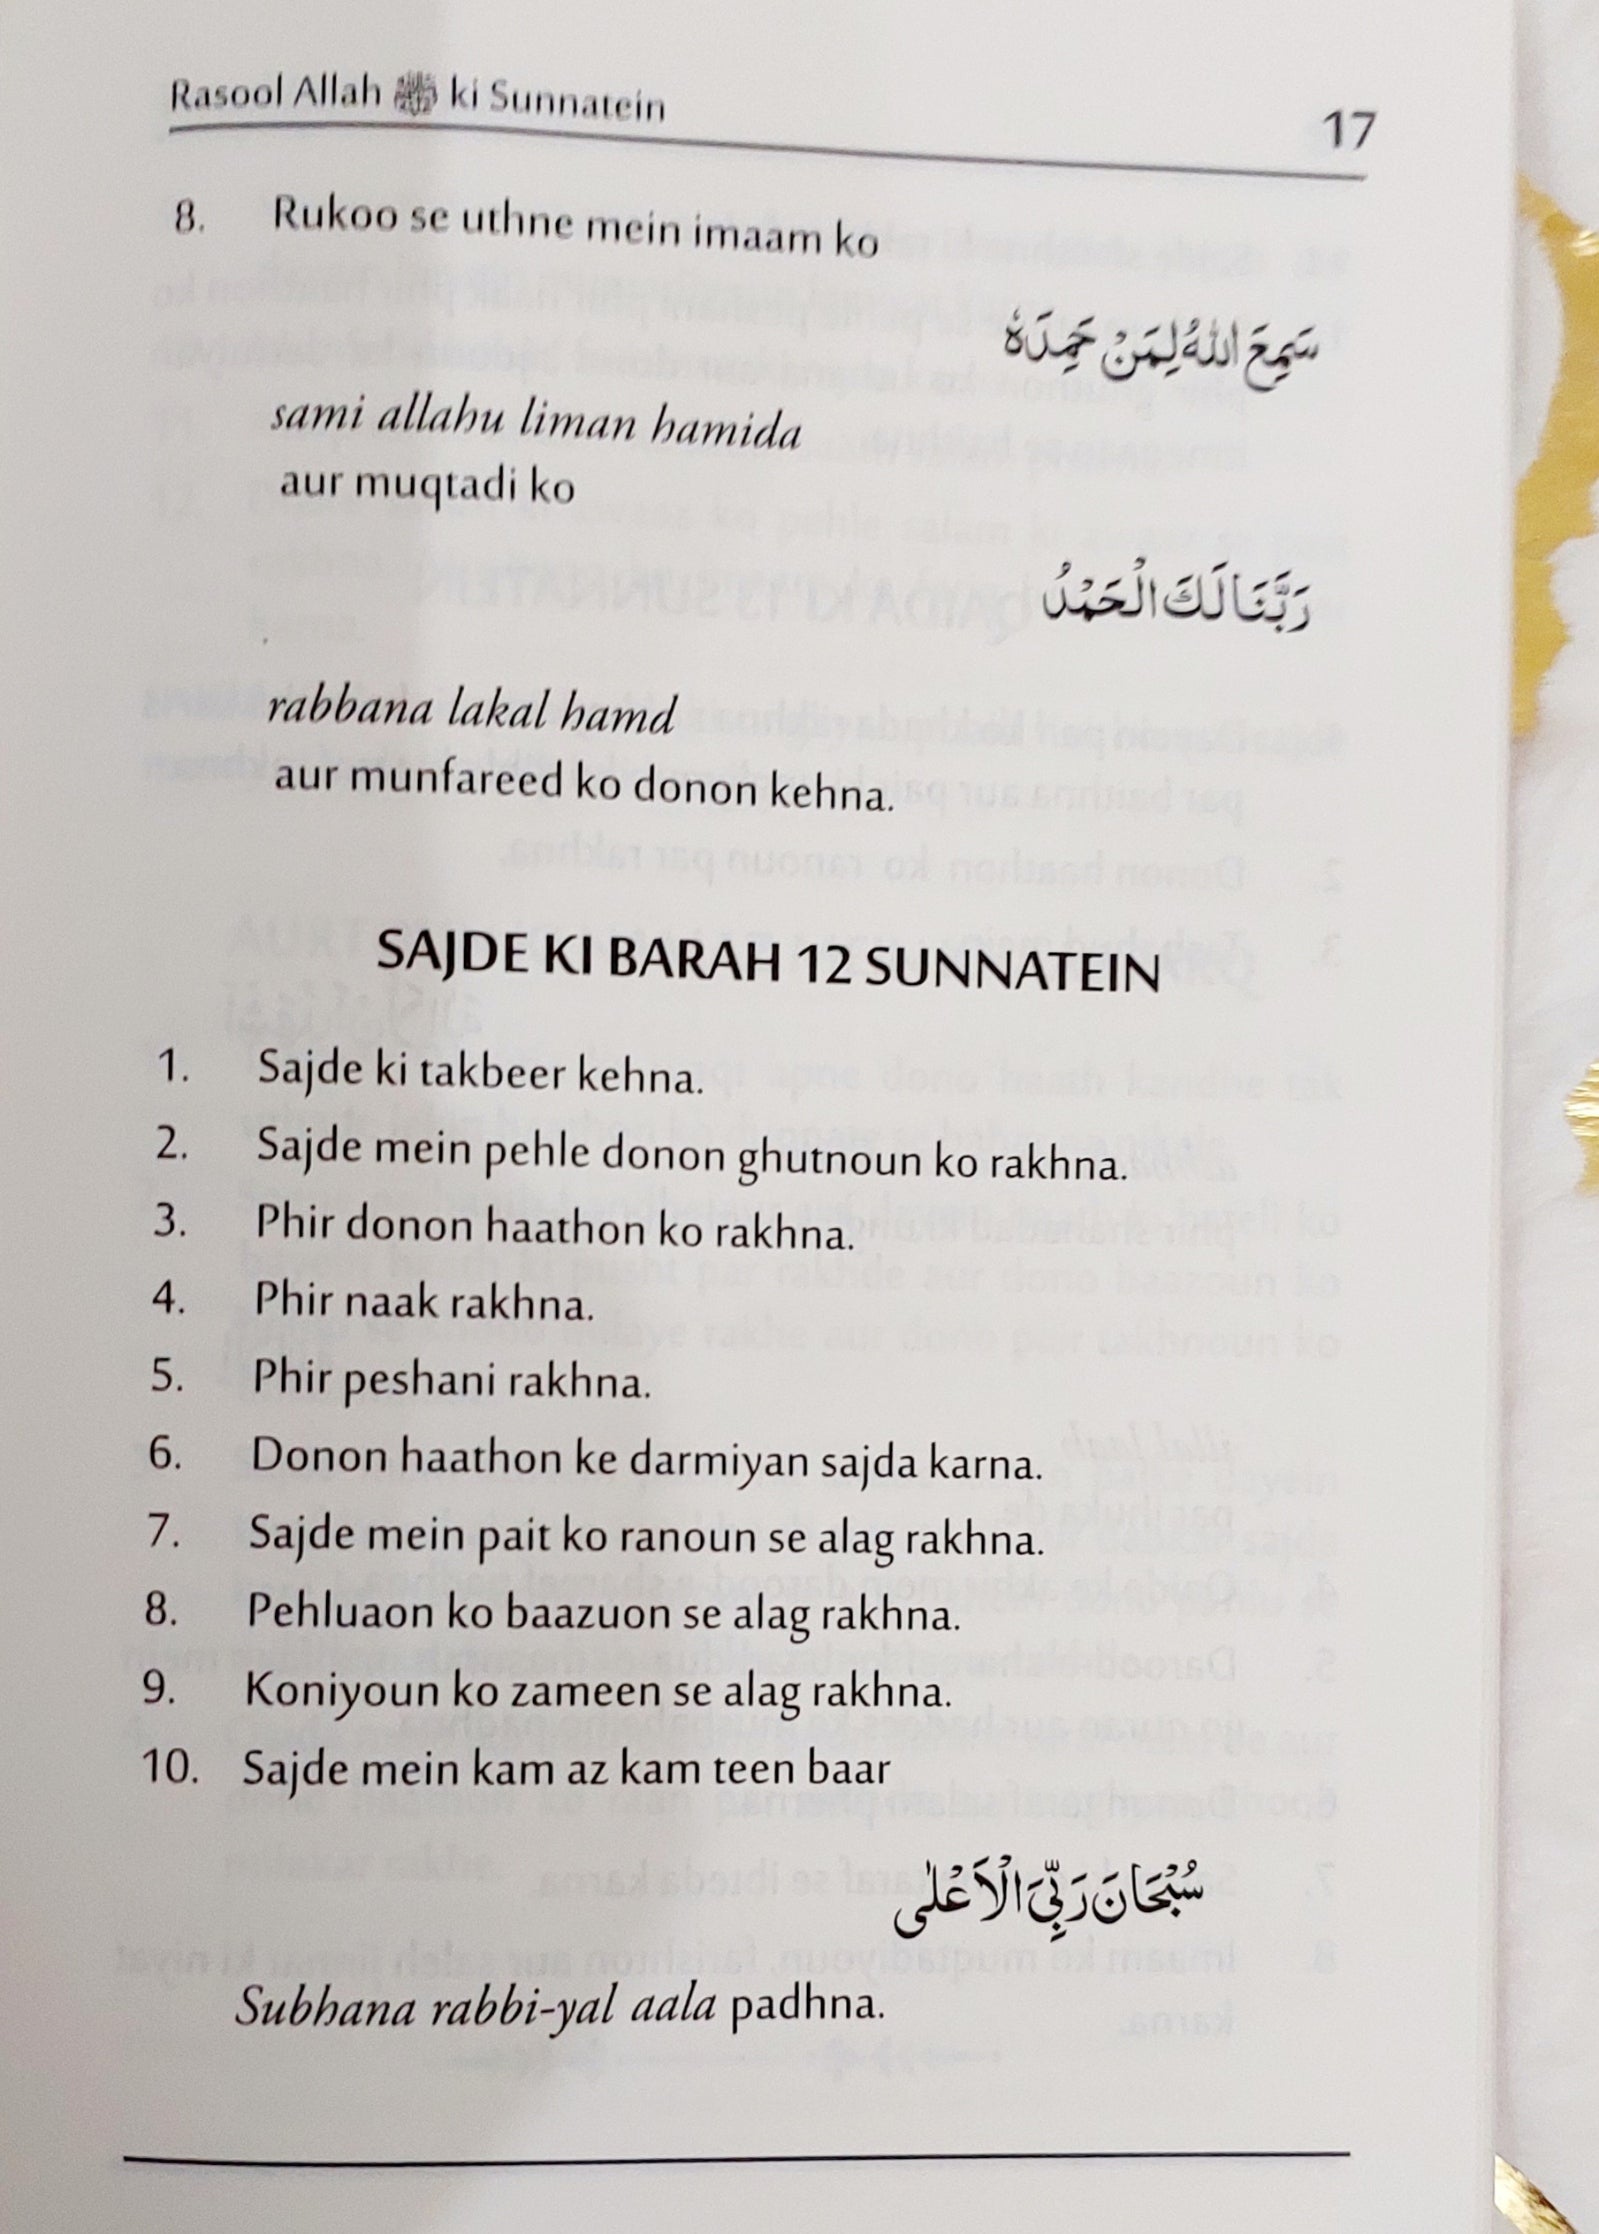 Rasool Allah ﷺ ki Sunnatein
17
8. Rukoo se uthne mein imaam ko
سَمِعَ اللهُ لِمَنْ حَمِدَهٗ
sami allahu liman hamida
aur muqtadi ko
رَبَّنَا لَكَ الْحَمْدُ
rabbana lakal hamd
aur munfareed ko donon kehna.
SAJDE KI BARAH 12 SUNNATEIN
1. Sajde ki takbeer kehna.
2. Sajde mein pehle donon ghutnoun ko rakhna.
3. Phir donon haathon ko rakhna.
4. Phir naak rakhna.
5. Phir peshani rakhna.
6. Donon haathon ke darmiyan sajda karna.
7. Sajde mein pait ko ranoun se alag rakhna.
8. Pehluaon ko baazuon se alag rakhna.
9. Koniyoun ko zameen se alag rakhna.
10. Sajde mein kam az kam teen baar
سُبْحَانَ رَبِّيَ الْاَعْلٰى
Subhana rabbi-yal aala padhna.